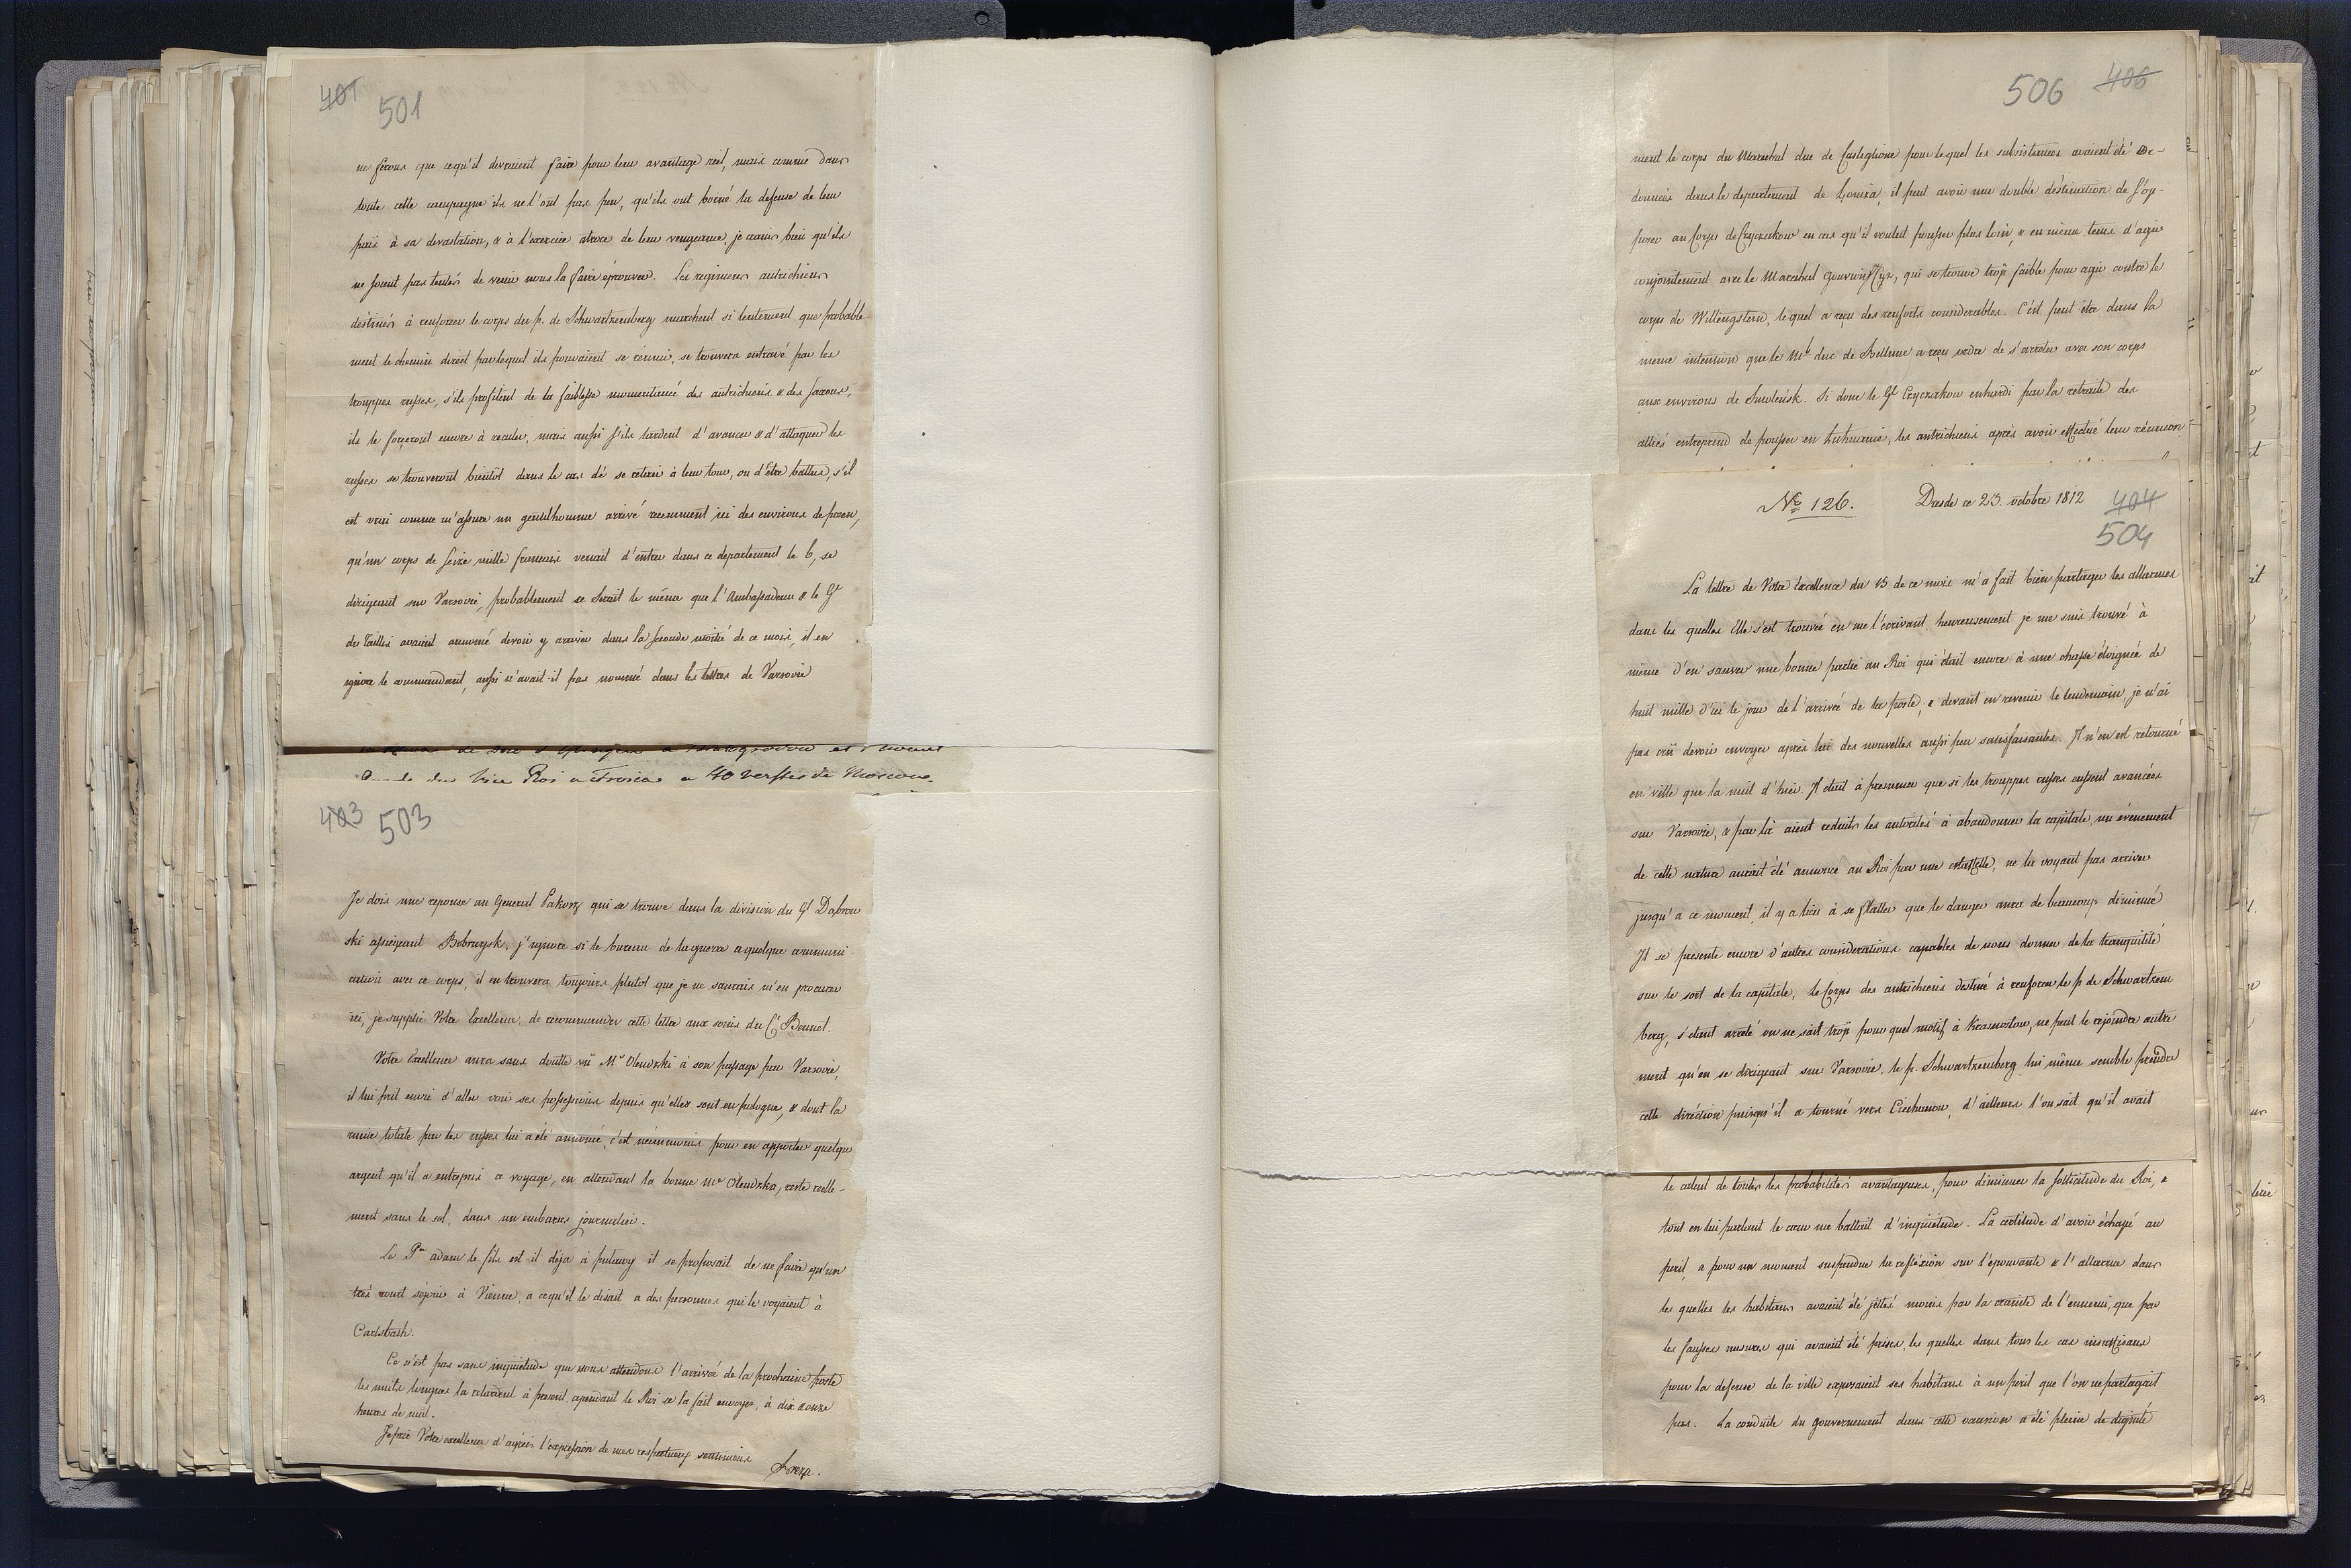 401 501
ne ferons que ce qu'il devraient faire pour leur avantage réel, mais comme dans
toute cette campagne ils ne l'ont pas fait, qu'ils ont borné la defense de leur
païs à sa devastation, & à l'exercice atroce de leur vengeance, je crains bien qu'ils
ne soient pas tentés de venir nous la faire éprouver. Les regimens autrichiens
destinés à renforcer le corps du p. de Schwartzenberg marchent si lentement que probable-
ment le chemin direct par lequel ils pouvaient se réunir, se trouvera entravé par les
trouppes russes, s'ils profitent de la faiblesse momentanée des autrichiens & des saxons,
ils le forçeront encore à reculer, mais aussi s'ils tardent d'avancer & d'attaquer les
russes se trouveront bientôt dans le cas de se retirer à leur tour, ou d'être battus, s'il
est vrai comme m'assure un gentilhomme arrivé recemment ici des environs de posen,
qu'un corps de seize mille francais venait d'entrer dans ce departement le 6, se
dirigeant sur Varsovie, probablement ce serait le même que l'Ambassadeur & le Gl
du Taillis avaient annoncé devoir y arriver dans la seconde moitié de ce mois, il en
ignore le commandant, aussi n'avait-il pas nommé dans les lettres de Varsovie
du Vice Roi a Troica a 40 verstes de Moscou.
403 503
Je dois une reponse au General Pakosz qui se trouve dans la division du Gl Dąbrow
ski assiegeant Bobruysk, j'ignore si le bureau de la guerre a quelque communi-
cation avec ce corps, il en trouvera toujours plutot que je ne saurais m'en procurer
ici, je supplie Votre Excellence, de recommander cette lettre aux soins du Cl Bennet.
Votre Excellence aura sans doutte vû Mr Olendzki à son passage par Varsovie,
il lui prit envie d'aller voir ses possessions depuis qu'elles sont en pologne, & dont la
ruine totale par les russes lui a été annoncé, c'est néanmoins pour en apporter quelque
argent qu'il a entrepris ce voyage, en attendant la bonne Me Olendzka, reste réelle-
ment sans le sol, dans un embaras journalier.
Le Pce adam le fils est il déja à pulawy il se proposait de ne faire qu'un
très court séjour à Vienne, a ce qu'il le disait a des personnes qui le voyaient à
Carlsbath.
Ce n'est pas sans inquietude que nous attendons l'arrivée de la prochaine poste
les nuits longues la retardent à present cependant le Roi se la fait envoyer, à dix & onze
heures de nuit.
Je prie Votre excellence d'agréer l'expression de mes respectueux sentimens
Breza.
506 406
ment le corps du Marechal duc de Castiglione pour lequel les subsistances avaient été or-
données dans le departement de Lomża, il peut avoir une double destination de s'op-
poser au Corps de Czyczakow en cas qu'il voulut pousser plus loin, & en même tems d'agir
conjointement avec le Marechal Gouvion St Cyr, qui se trouve trop faible pour agir contre le
corps de Wittengstein, lequel a reçu des renforts considerables. C'est peut être dans la
meme intention que le Ml duc de Bellune a reçu ordre de s'arreter avec son corps
aux environs de Smoleńsk. Si donc le Gl Czyczakow enhardi par la retraite des
alliés entreprend de pousser en Lithuanie, les autrichiens après avoir effectué leur réunion
No 126. Dresde ce 23 octobre 1812 404
504
La lettre de Votre Excellence du 15 de ce mois m'a fait bien partager les allarmes
dans les quelles Elle s'est trouvée en me l'ecrivant, heureusement je me suis trouvé à
même d'en sauver une bonne partie au Roi qui était encore à une chasse éloignée de
huit mille d'ici le jour de l'arrivée de la poste, & devant en revenir le lendemain, je n'ai
pas crû devoir envoyer après lui des nouvelles aussi peu satisfaisantes. Il n'en est retourné
en ville que la nuit d'hier. Il etait à presumer que si les trouppes russes eussent avancées
sur Varsovie, & par là aient reduits les autorités à abandonner la capitale, un événement
de cette nature aurait été annoncé au Roi par une estaffette, ne la voyant pas arriver
jusqu'a ce moment, il y a lieu à se flatter que le danger aura de beaucoup diminué
Il se presente encore d'autres considerations capables de nous donner de la tranquilité
sur le sort de la capitale, le Corps des autrichiens destiné à renforcer le p. de Schwartzen
berg, s'etant arreté on ne sait trop pour quel motif à Krasnostaw, ne peut le rejoindre autre
ment qu'en se dirigeant sur Varsovie, le p. Schwartzenberg lui même semble prendre
cette diréction puisqu'il a tourné vers Ciechanow, d'ailleurs l'on sait qu'il avait
le calcul de toutes les probabilités avantageuses, pour diminuer la sollicitude du Roi, &
tout en lui parlant le cœur me battait d'inquietude. La certitude d'avoir échapé au
peril, a pour un moment suspendue la refléxion sur l'épouvante & l'allarme dans
les quelles les habitans avaient été jettés moins par la crainte de l'ennemi, que par
les fausses mesures qui avaient été prises, les quelles dans tous les cas insuffisans
pour la defense de la ville exposaient ses habitans à un peril que l'on ne partageait
pas. La conduite du gouvernement dans cette occasion a été pleine de dignité